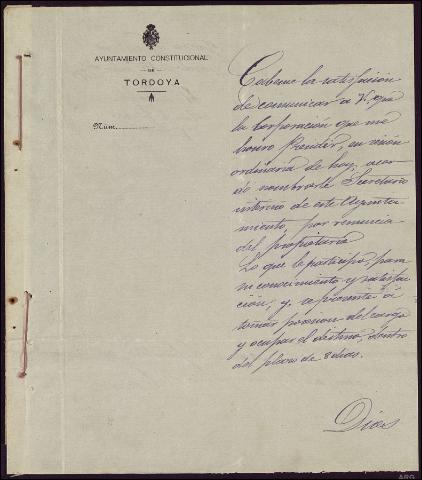 AYUNTAMIENTO CONSTITUCIONAL
DE
TORDOYA
Núm.
Cabeme la satisfacción
de comunicar a V. que
la Corporación que me
honro Presidir, en sesión
ordinaria de hoy, acor
dó nombrarle Secretario
interino de este Ayunta
miento, por renuncia
del propietario
Lo que le participo, para
su conocimiento y satisfac
ción, y, se presente á
tomar posesion del cargo
y ocupar el destino, dentro
del plazo de 8 dias.
Dios
ARG